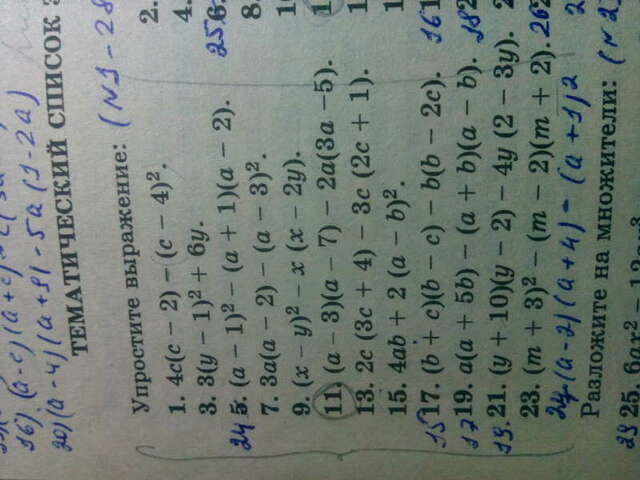 16) (a-c)(a+c)
20) (a-4)(a+9)-5a(1-2a)
ТЕМАТИЧЕСКИЙ СПИСОК
Упростите выражение: (N1-28
1. 4c(c − 2) − (c − 4)². 2.
3. 3(y − 1)² + 6y. 4.
24 5. (a − 1)² − (a + 1)(a − 2). 25 6.
7. 3a(a − 2) − (a − 3)². 8.
9. (x − y)² − x (x − 2y). 1
11. (a − 3)(a − 7) − 2a(3a −5). 1
13. 2c (3c + 4) − 3c (2c + 1). 1
15. 4ab + 2 (a − b)². 1
15 17. (b + c)(b − c) − b(b − 2c). 16 1
17 19. a(a + 5b) − (a + b)(a − b). 18 2
19. 21. (y + 10)(y − 2) − 4y (2 − 3y). 2
23. (m + 3)² − (m − 2)(m + 2). 26 2
(a-2)(a+4)-(a+1)2
Разложите на множители: (N2
29 25. 6ax² − 12ax³